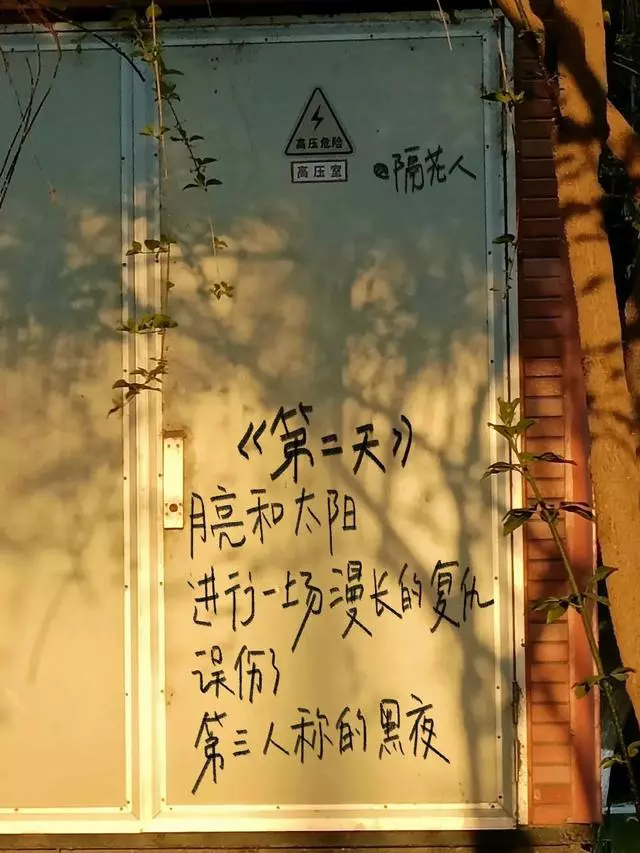 高压危险
高压室
@隔花人
《第二天》
月亮和太阳
进行一场漫长的复仇
误伤了
第三人称的黑夜